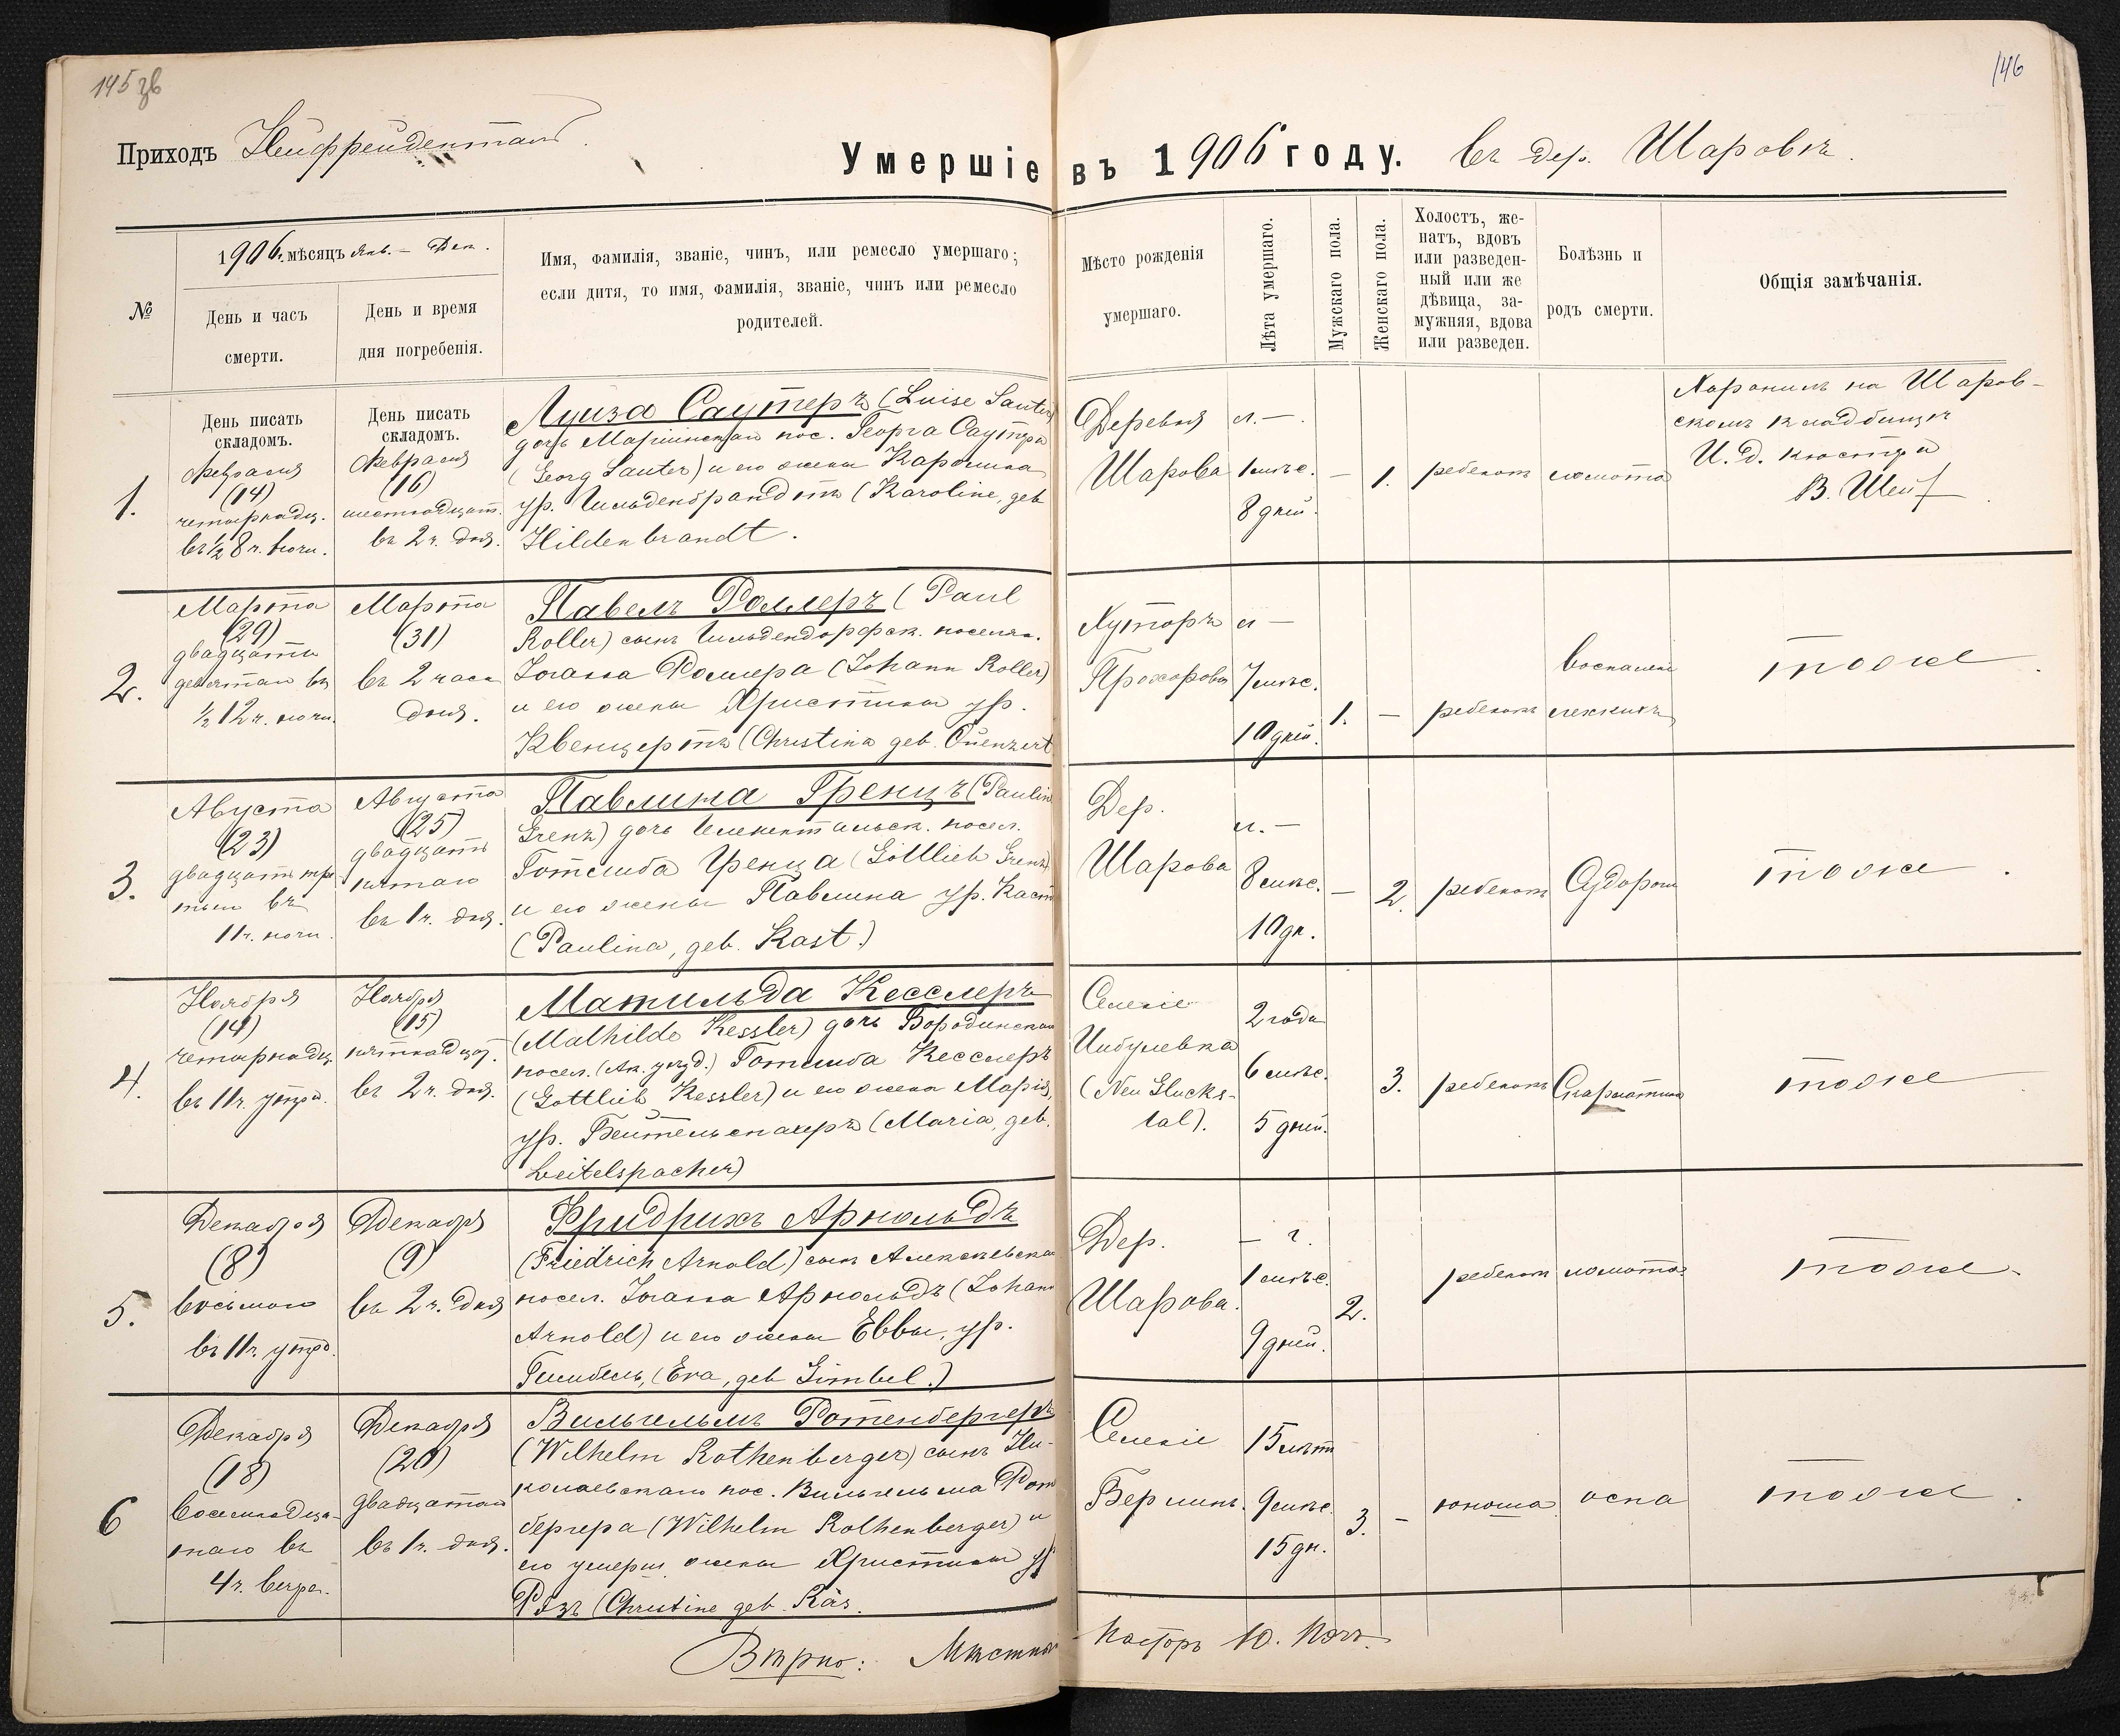 145 зв
146
Приходъ Нейфрейденталь
Умершіе въ 1906 году. Въ дер. Шаровѣ.
№
1906. мѣсяцъ Янв. – Дек.
День и часъ
смерти.
День и время
дня погребенія.
Имя, фамилія, званіе, чинъ, или ремесло умершаго;
если дитя, то имя, фамилія, званіе, чинъ или ремесло
родителей.
Мѣсто рожденія
умершаго.
Лѣта умершаго.
Мужскаго пола.
Женскаго пола.
Холостъ, же-
натъ, вдовъ
или разведен-
ный или же
дѣвица, за-
мужняя, вдова
или разведен.
Болѣзнь и
родъ смерти.
Общія замѣчанія.
1.
День писать
складомъ.
Февраля
(14)
четырнадц.
въ ½ 8 ч. ночи.
День писать
складомъ.
Февраля
(16)
шестнадцат.
въ 2 ч. дня.
Луиза Саутеръ (Luise Sauter)
дочь Маріинскаго пос. Георга Саутера
(Georg Sauter) и его жены Каролина
ур. Гильденбрандтъ (Karoline, geb
Hildenbrandt.
Деревня
Шарова
л. –
1 мѣс.
8 дней.
–
1.
ребенокъ
ломота
Хоронилъ на Шаров-
скомъ кладбищѣ
И. д. кюстера
В. Шей
2.
Марта
(29)
двадцать
девятаго въ
½ 12 ч. ночи.
Марта
(31)
въ 2 часа
дня.
Павелъ Роллеръ (Paul
Roller) сынъ Гильдендорфск. поселян.
Іоганна Роллера (Johann Roller)
и его жены Христины ур.
Квенцертъ (Christina geb. Quenzert
Хуторъ
Прохорова
л –
7 мѣс.
10 дней.
1.
–
ребенокъ
воспаленіе
легкихъ
тоже.
3.
Августа
(23)
двадцать тре-
тьяго въ
11 ч. ночи.
Августа
(25)
двадцать
пятаго
въ 1 ч. дня.
Павлина Гренцъ (Paulin
Grenz) дочь посел.
Готлиба Гренца (Gottlieb Grenz)
и его жены Павлина ур. Каст
(Paulina, geb. Kast.)
Дер.
Шарова
л. –
8 мѣс.
10 дн.
–
2.
ребенокъ
Судороги
тоже.
4.
Ноября
(14)
четырнадц.
въ 11 ч. утра.
Ноября
(15)
пятнадцат.
въ 2 ч. дня.
Матильда Кесслеръ
(Mathilde Kessler) дочь Бородинскаго
посел. (Ак. уѣзд.) Готлиба Кесслеръ
(Gottlieb Kessler) и его жена Марія,
ур. Бейтельспахеръ (Maria, geb.
Beitelspacher)
Селеніе
Цибулевка
(Neu Glucks-
tal).
2 года
6 мѣс.
5 дней.
3.
ребенокъ
Скарлатина
тоже
5.
Декабря
(8)
восьмого
въ 11 ч. утра.
Декабря
(9)
въ 2 ч. дня
Фридрихъ Арнольдъ
(Friedrich Arnold) сын Алексѣевскаго
посел. Іоганна Арнольдъ (Johann
Arnold) и его жены Еввы, ур.
Гимбель, (Eva, geb Gimbel.)
Дер.
Шарова.
– г.
1 мѣс.
9 дней.
2.
ребенокъ
ломота.
тоже.
6
Декабря
(18)
Восемнадца-
таго въ
4 ч. вечера.
Декабря
(20)
двадцатаго
въ 1 ч. дня.
Вильгельмъ Ротенбергеръ
(Wilhelm Rothenberger) сынъ Ни-
колаевскаго пос. Вильгельма Рот
бергера (Wilhelm Rothenberger) и
его умерш. жены Христины ур
Рэзъ (Christine geb. Räs.
Селеніе
Берлинъ.
15 лѣтъ
9 мѣс.
15 дн.
3.
–
юноша
оспа
тоже.
Вѣрно: Мѣстный Пасторъ Ю. Пэчъ.